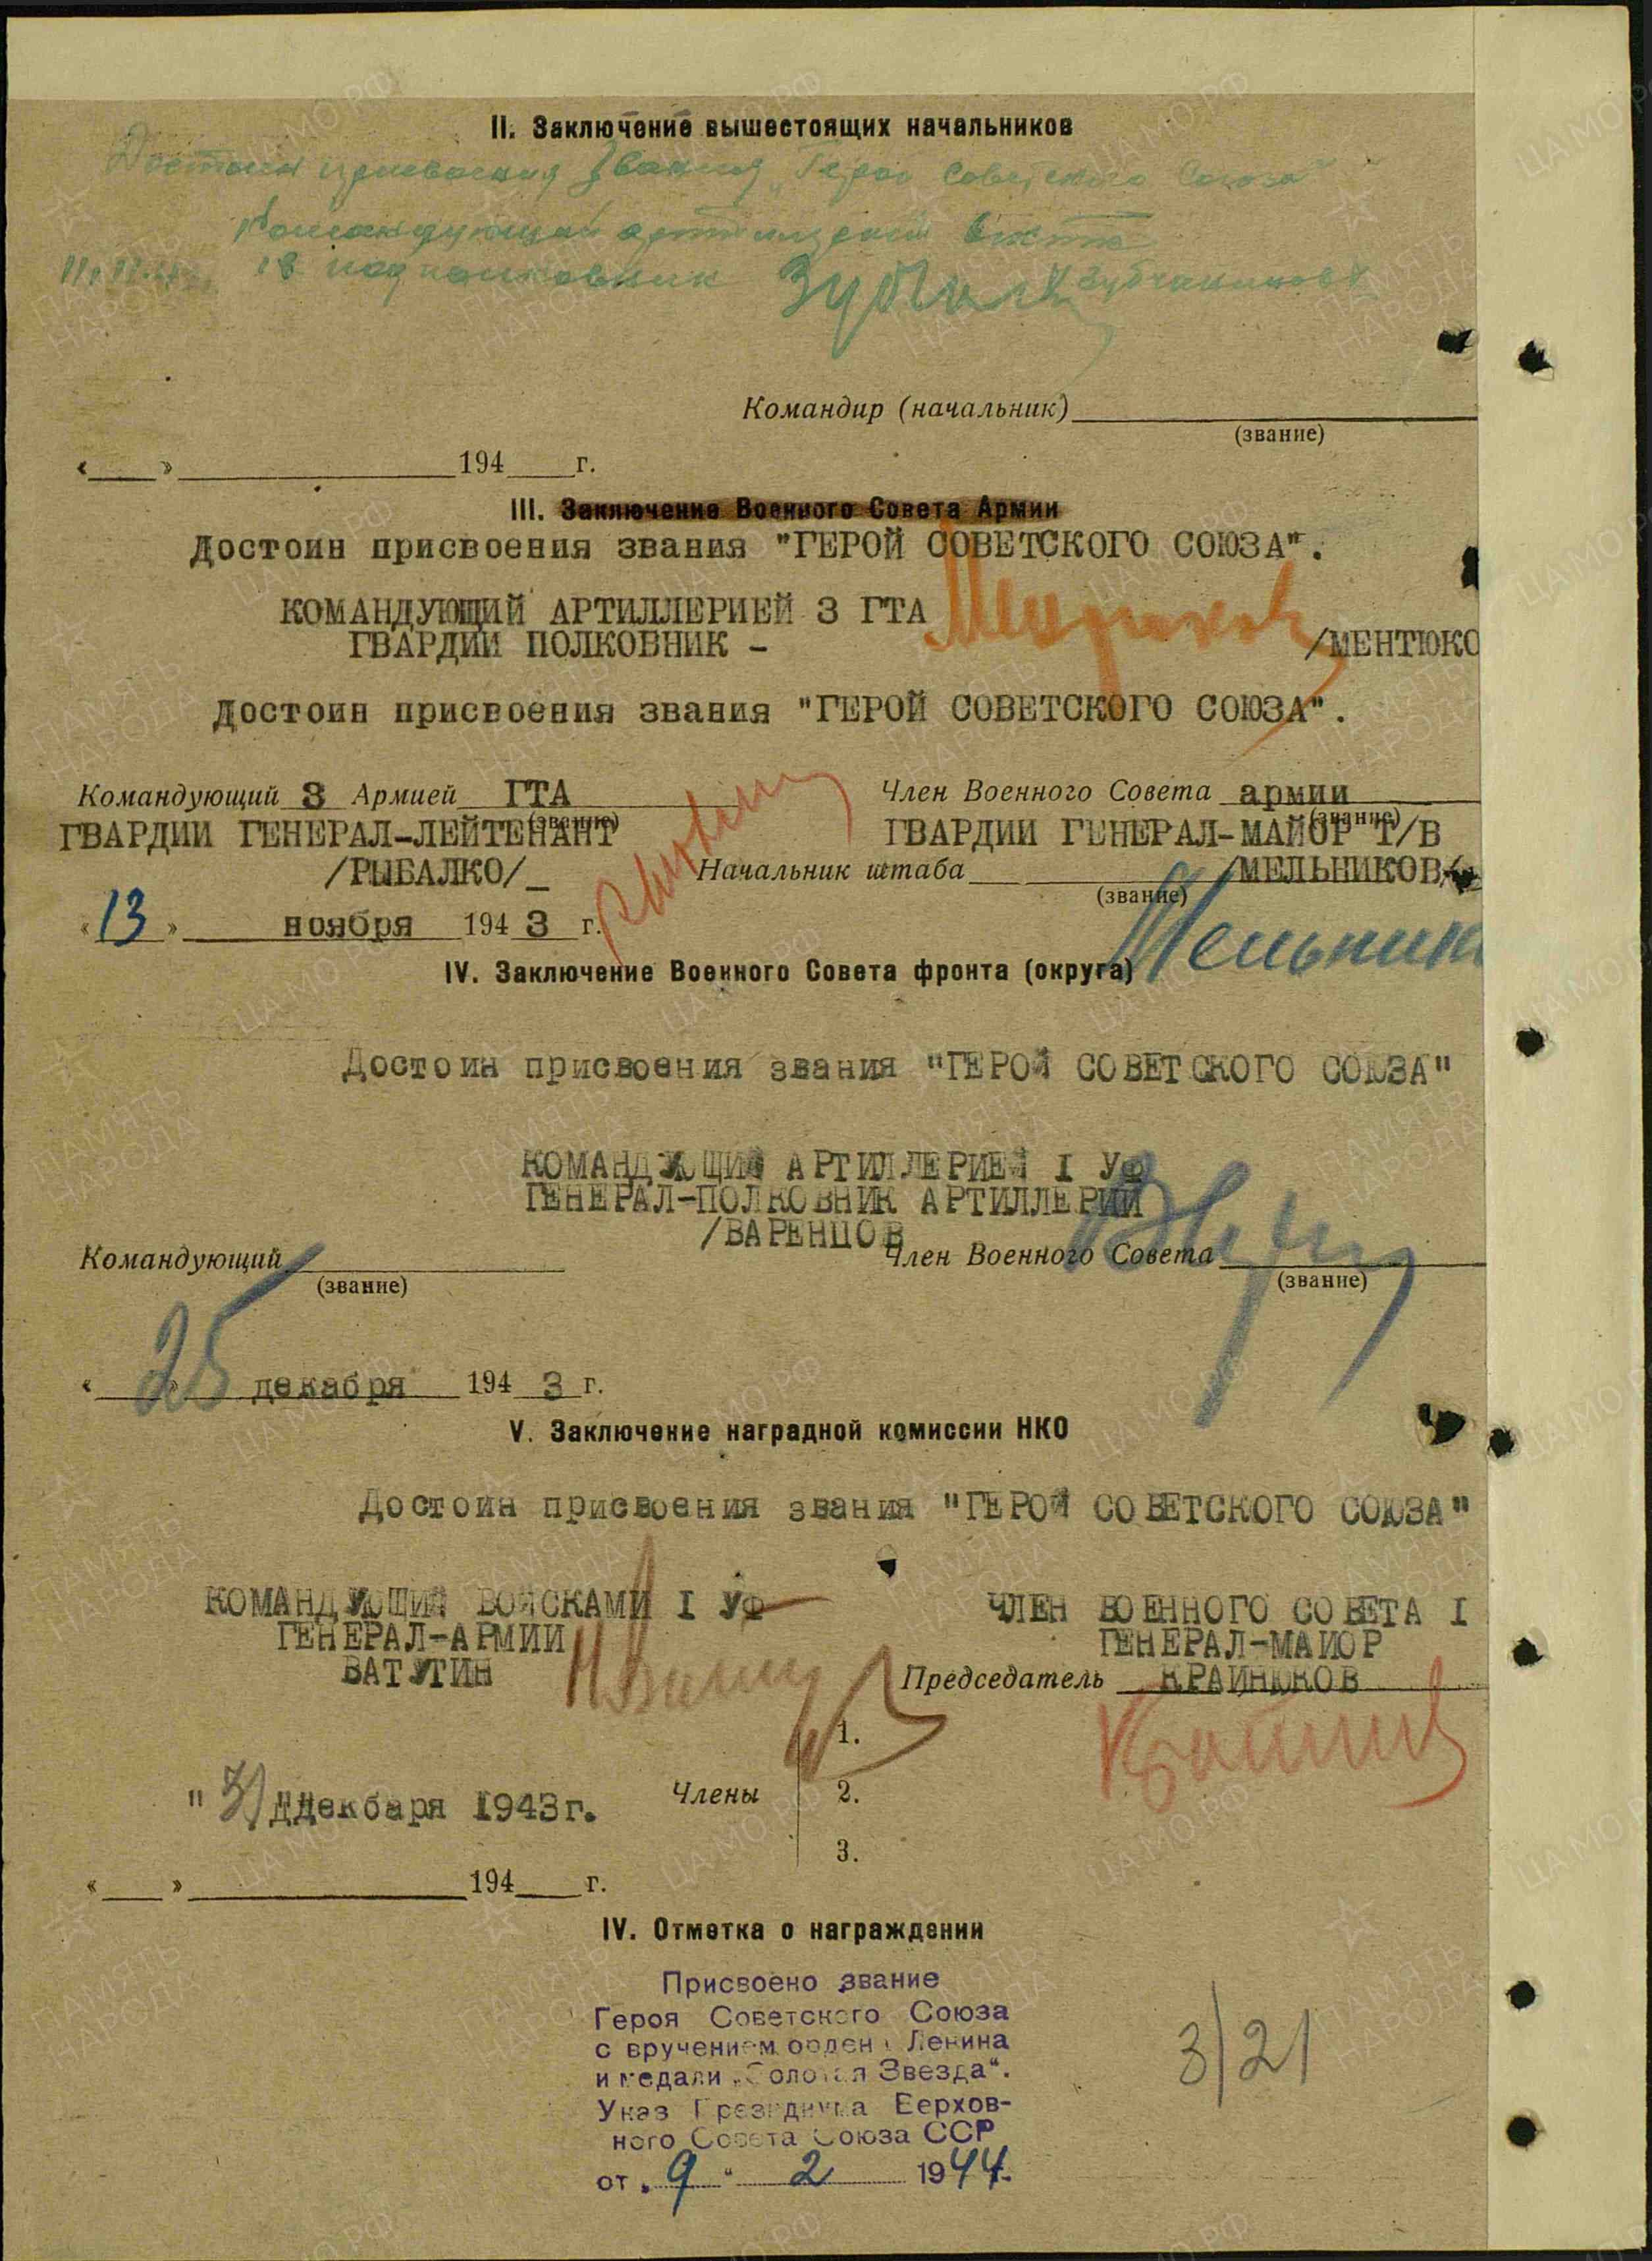 II. Заключение вышестоящих начальников
Достоин присвоения звания „Герой Советского Союза"
Командующий артиллерией
подполковник
Командир (начальник)
(звание)
«   »   194   г.
III. Заключение Военного Совета Армии
Достоин присвоения звания "ГЕРОЙ СОВЕТСКОГО СОЮЗА".
КОМАНДУЮЩИЙ АРТИЛЛЕРИЕЙ 3 ГТА
ГВАРДИИ ПОЛКОВНИК -   /МЕНТЮКО
Достоин присвоения звания "ГЕРОЙ СОВЕТСКОГО СОЮЗА".
Командующий 3 Армией ГТА   Член Военного Совета армии
(звание)   (звание)
ГВАРДИИ ГЕНЕРАЛ-ЛЕЙТЕНАНТ   ГВАРДИИ ГЕНЕРАЛ-МАЙОР Т/В
/РЫБАЛКО/_   Начальник штаба   /МЕЛЬНИКОВ/
(звание)
«13» ноября 1943 г.   Мельник
IV. Заключение Военного Совета фронта (округа)
Достоин присвоения звания "ГЕРОЙ СОВЕТСКОГО СОЮЗА"
КОМАНДУЮЩИЙ АРТИЛЛЕРИЕЙ I УФ
ГЕНЕРАЛ-ПОЛКОВНИК АРТИЛЛЕРИИ
/ВАРЕНЦОВ
Командующий   Член Военного Совета
(звание)   (звание)
«25» декабря 1943 г.
V. Заключение наградной комиссии НКО
Достоин присвоения звания "ГЕРОЙ СОВЕТСКОГО СОЮЗА"
КОМАНДУЮЩИЙ ВОЙСКАМИ I УФ   ЧЛЕН ВОЕННОГО СОВЕТА I
ГЕНЕРАЛ-АРМИИ   ГЕНЕРАЛ-МАЙОР
ВАТУТИН   Председатель КРАЙНЮКОВ
1.
"31 ддекбаря 1943г.   Члены   2.
3.
«   »   194   г.
IV. Отметка о награждении
Присвоено звание
Героя Советского Союза
с вручением ордена Ленина
и медали „Золотая Звезда".
Указ Президиума Верхов-
ного Совета Союза ССР
от „9" 2 1944.
3/21